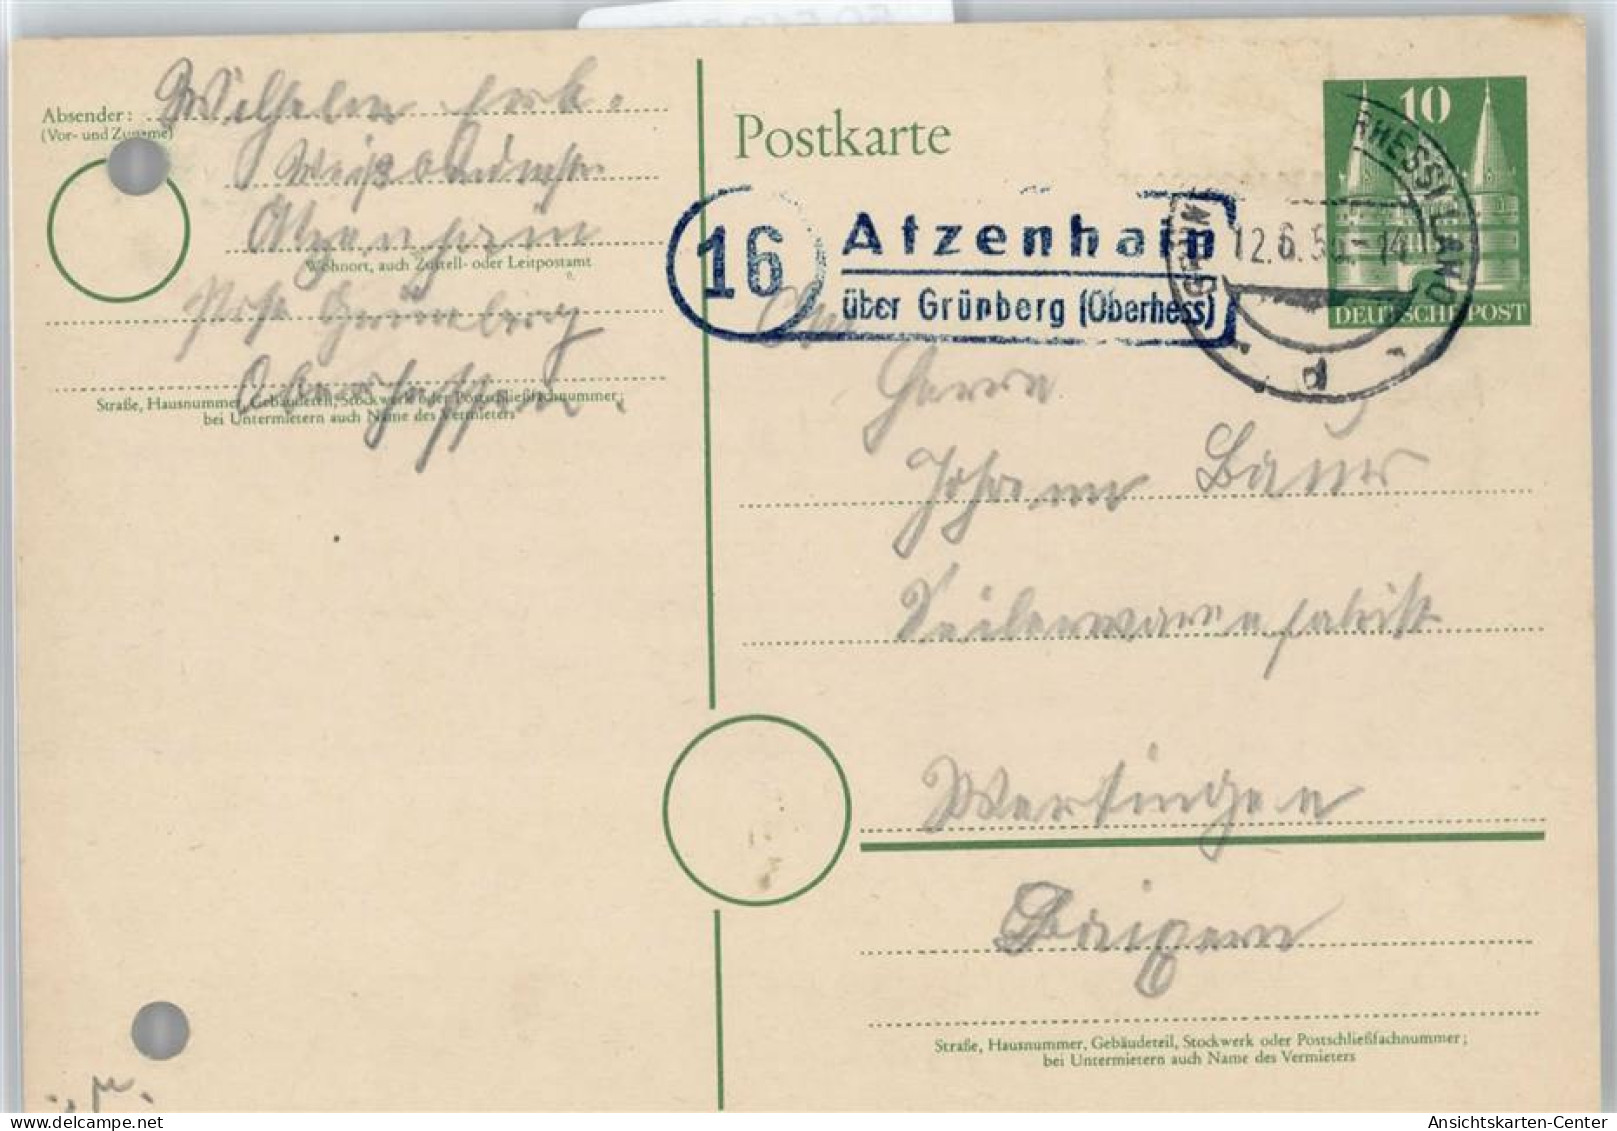 Absender: Wilhelm Erk.
(Vor- und Zuname)
Weißbindermstr.
Atzenhain
Wohnort, auch Zustell- oder Leitpostamt
Post Grünberg
Oberhessen.
Straße, Hausnummer, Gebäudeteil, Stockwerk oder Postschließfachnummer;
bei Untermietern auch Name des Vermieters
Postkarte
10
DEUTSCHE POST
16
Atzenhain
über Grünberg (Oberhess)
12.6.5 - 14
d
An
Herrn
Johann Baur
Seilerwarenfabrik
Wertingen
Baiyern
Straße, Hausnummer, Gebäudeteil, Stockwerk oder Postschließfachnummer;
bei Untermietern auch Name des Vermieters
Ansichtskarten-Center